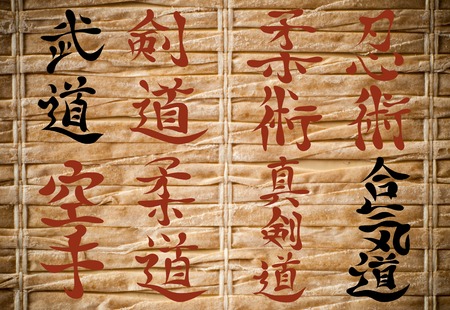 武道
剣道
柔術
忍術
空手
柔道
真剣道
合気道